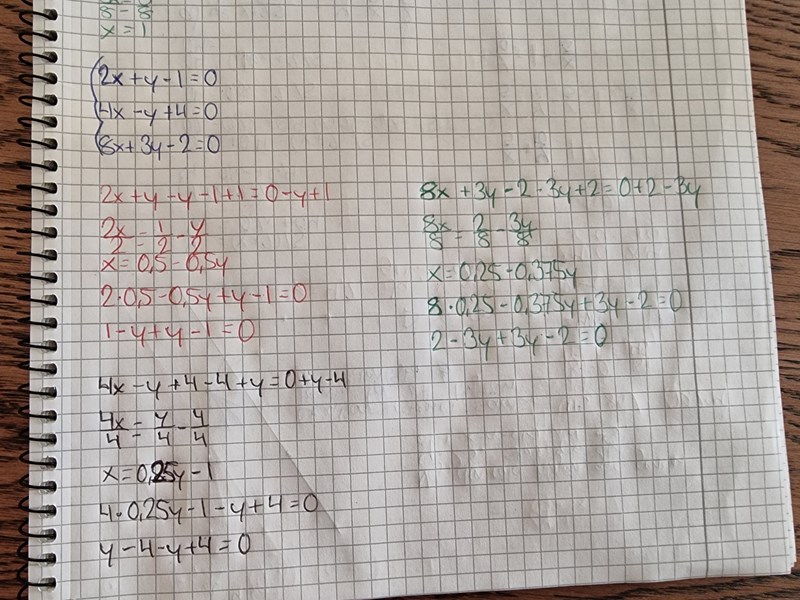 8 - 8
x = 1
2x + y - 1 = 0
4x - y + 4 = 0
8x + 3y - 2 = 0
2x + y - y - 1 + 1 = 0 - y + 1
2x/2 = 1/2 - y/2
x = 0,5 - 0,5y
2 · 0,5 - 0,5y + y - 1 = 0
1 - y + y - 1 = 0
4x - y + 4 - 4 + y = 0 + y - 4
4x/4 = y/4 - 4/4
x = 0,25y - 1
4 · 0,25y - 1 - y + 4 = 0
y - 4 - y + 4 = 0
8x + 3y - 2 - 3y + 2 = 0 + 2 - 3y
8x/8 = 2/8 - 3y/8
x = 0,25 - 0,375y
8 · 0,25 - 0,375y + 3y - 2 = 0
2 - 3y + 3y - 2 = 0